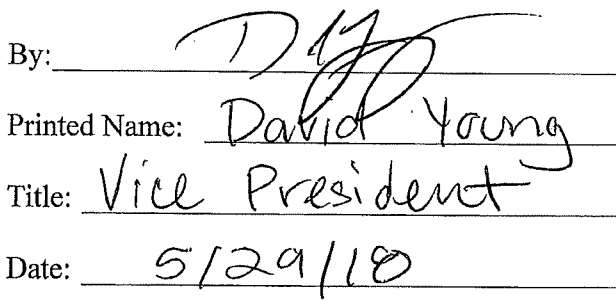 By:
Printed Name: David Young
Title: Vice President
Date: 5/29/18